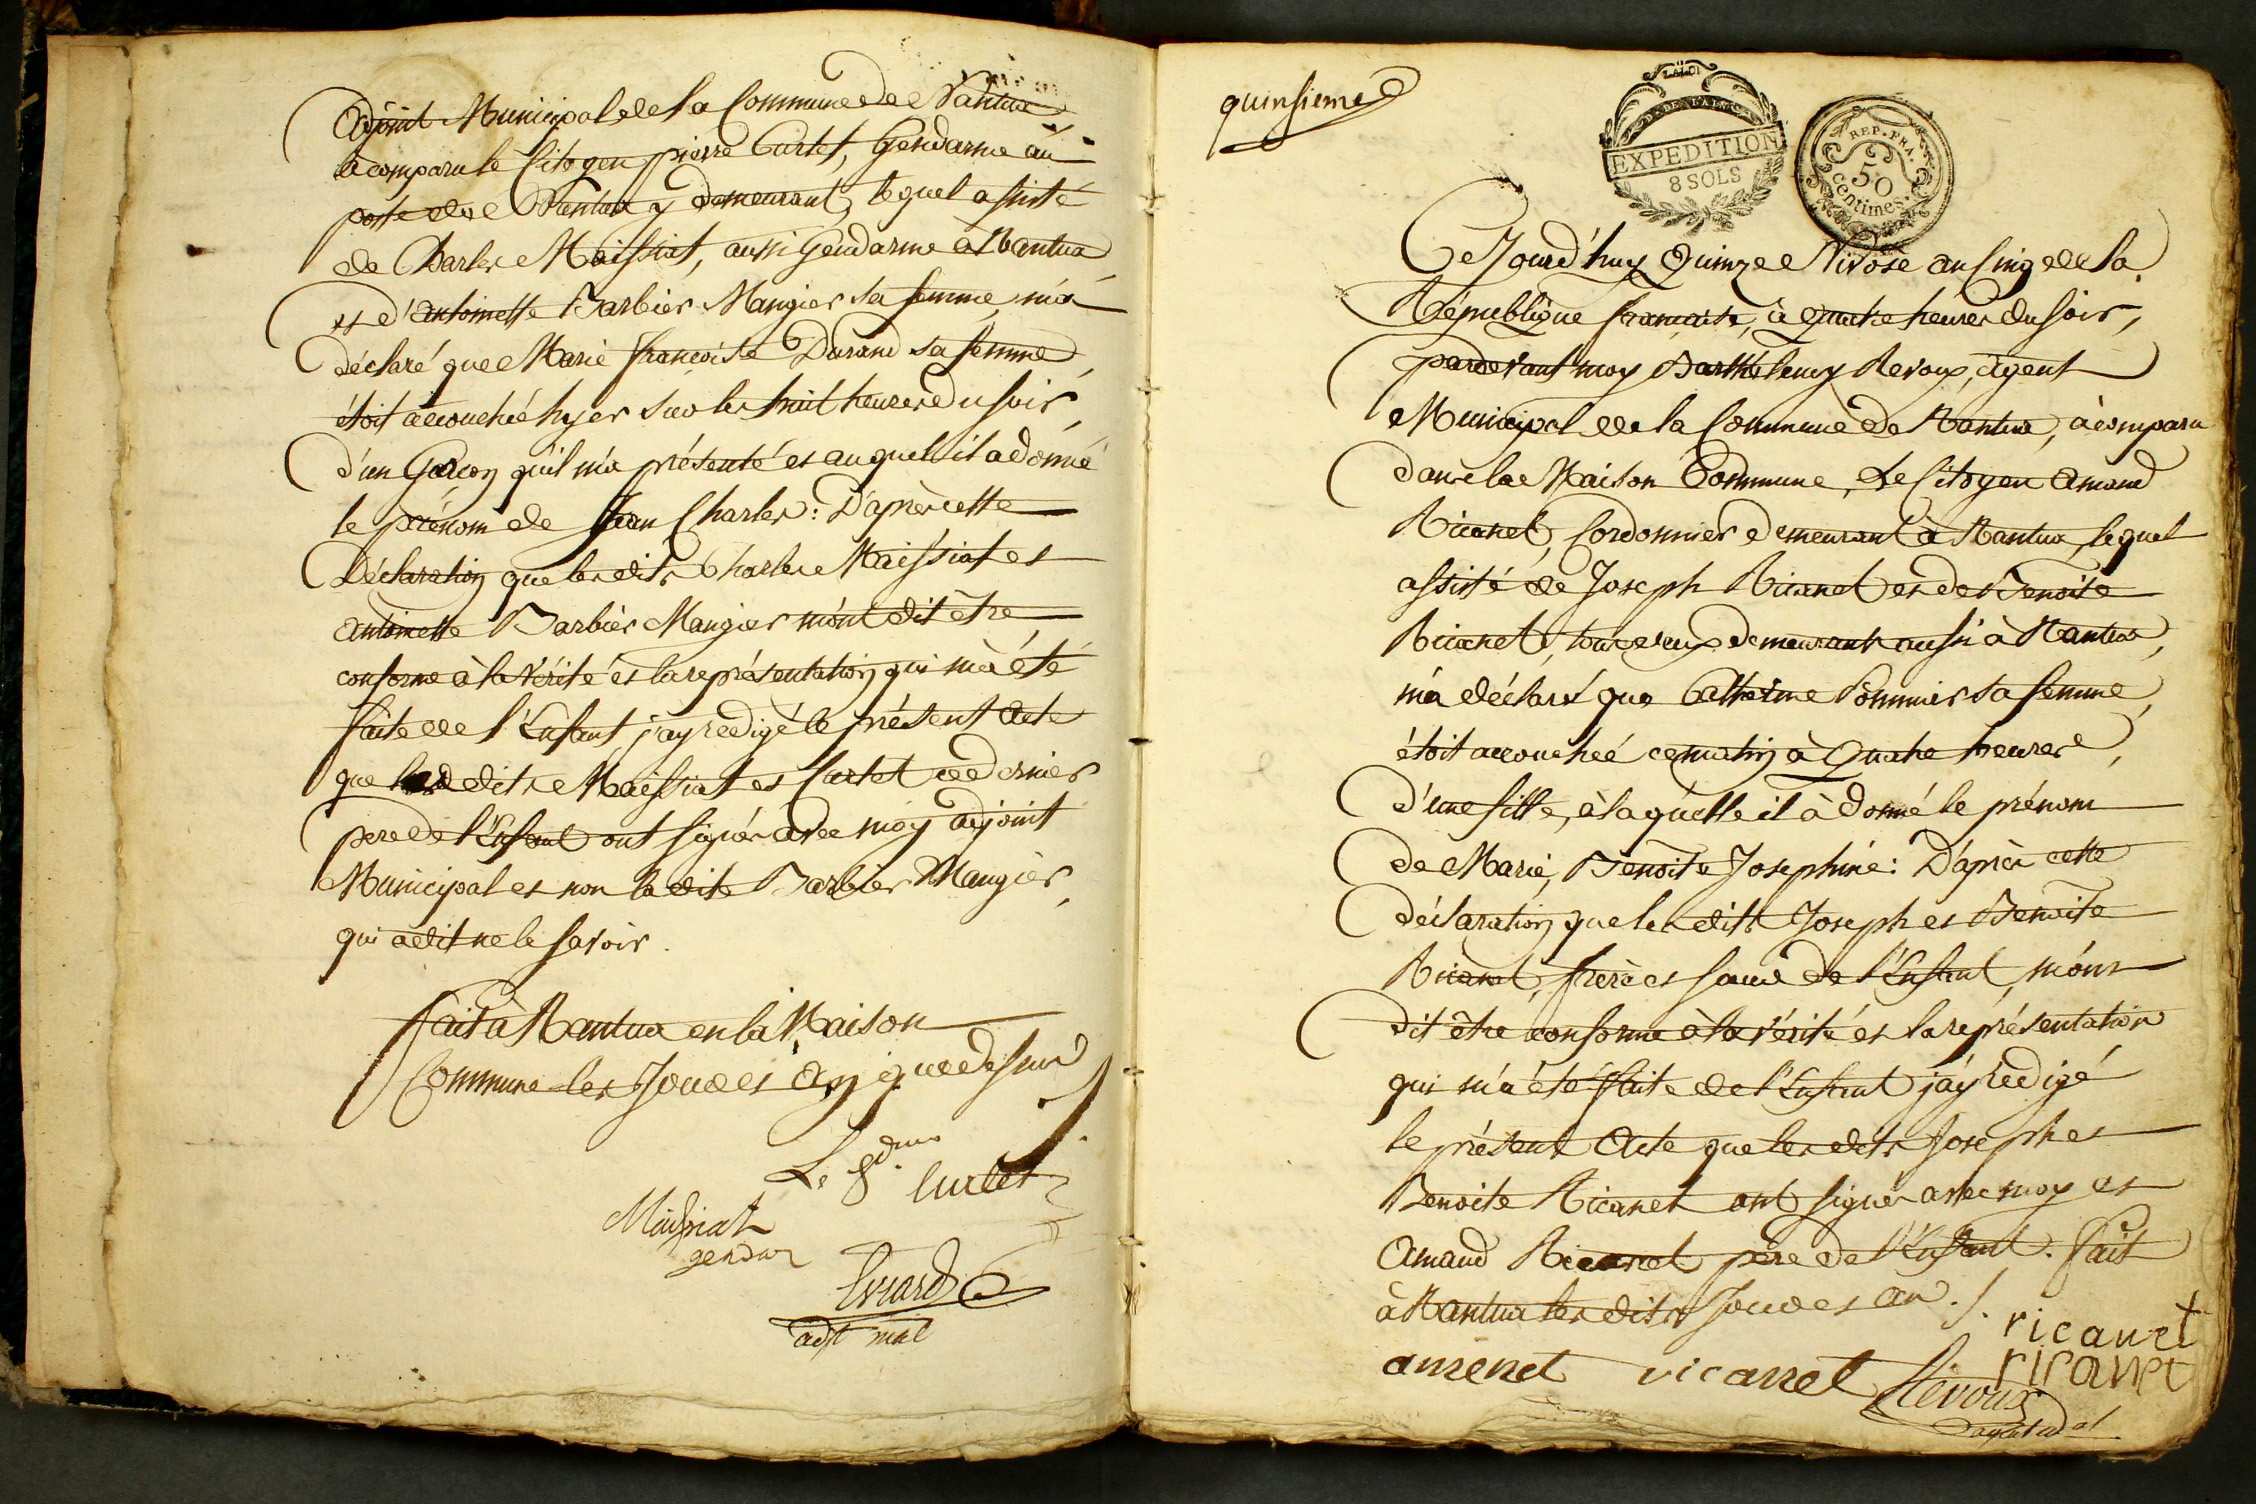 adjoint Municipal de la Commune de Nantua
a comparu le Citoyen pierre Curtet, Gendarme au
poste de Nantua y demeurant, lequel assisté
de Charles Maissiat, aussi Gendarme à Nantua
et d'antoinette Barbier Mangier sa femme, m'a
déclaré que Marie françoise Durand sa femme,
étoit accouchée hyer sur les huit heures du soir,
d'un Garçon qu'il m'a présenté et auquel il a donné
le prénom de Jean Charles : D'après cette
Déclaration que lesdits Charles Maissiat et
antoinette Barbier Mangier m'ont dit être
conforme à la Vérité et la représentation qui m'a été
faite de l'Enfant, j'ay redigé le présent acte
que lesdits Maissiat et Curtet ce dernier
pere de l'Enfant ont signés avec moy adjoint
Municipal et non ladite Barbier Mangier,
qui a dit ne le savoir.
fait à Nantua en la Maison
Commune les Jour et an que dessus
Curtet
Maissiat
gendar
Evrard
adjt mal
quinsieme
LA LOI
DEP. DE L'AIN
EXPEDITION
8 SOLS
REP. FRA.
50
centimes.
Ce Jourd'huy Quinze Nivose an Cinq de la
République française, à quatre heures du soir,
pardevant moy Barthélemy Revoux, agent
Municipal de la Commune de Nantua, à comparu
dans la Maison Commune, Le Citoyen amand
Ricanet, Cordonnier demeurant à Nantua, lequel
assisté de Joseph Ricanet et de Benoite
Ricanet, tous deux demeurants aussi à Nantua,
m'a déclaré que Catherine Pommier sa femme,
étoit accouchée ce matin à Quatre heures,
d'une fille, à laquelle il à donné le prénom
de Marie, Benoite Josephine : D'après cette
déclaration que lesdits Joseph et Benoite
Ricanet, frère et soeur de l'Enfant, m'ont
dit être conforme à la vérité et la représentation
qui m'a été faite de l'Enfant j'ay redigé
le présent acte que lesdits Joseph et
Benoite Ricanet ont signés avec moy et
amand Ricanet père de l'Enfant. fait
à Nantua lesdits Jour et an ./.
ricanet
ricanet
amenet ricanet Revoux
agent mal